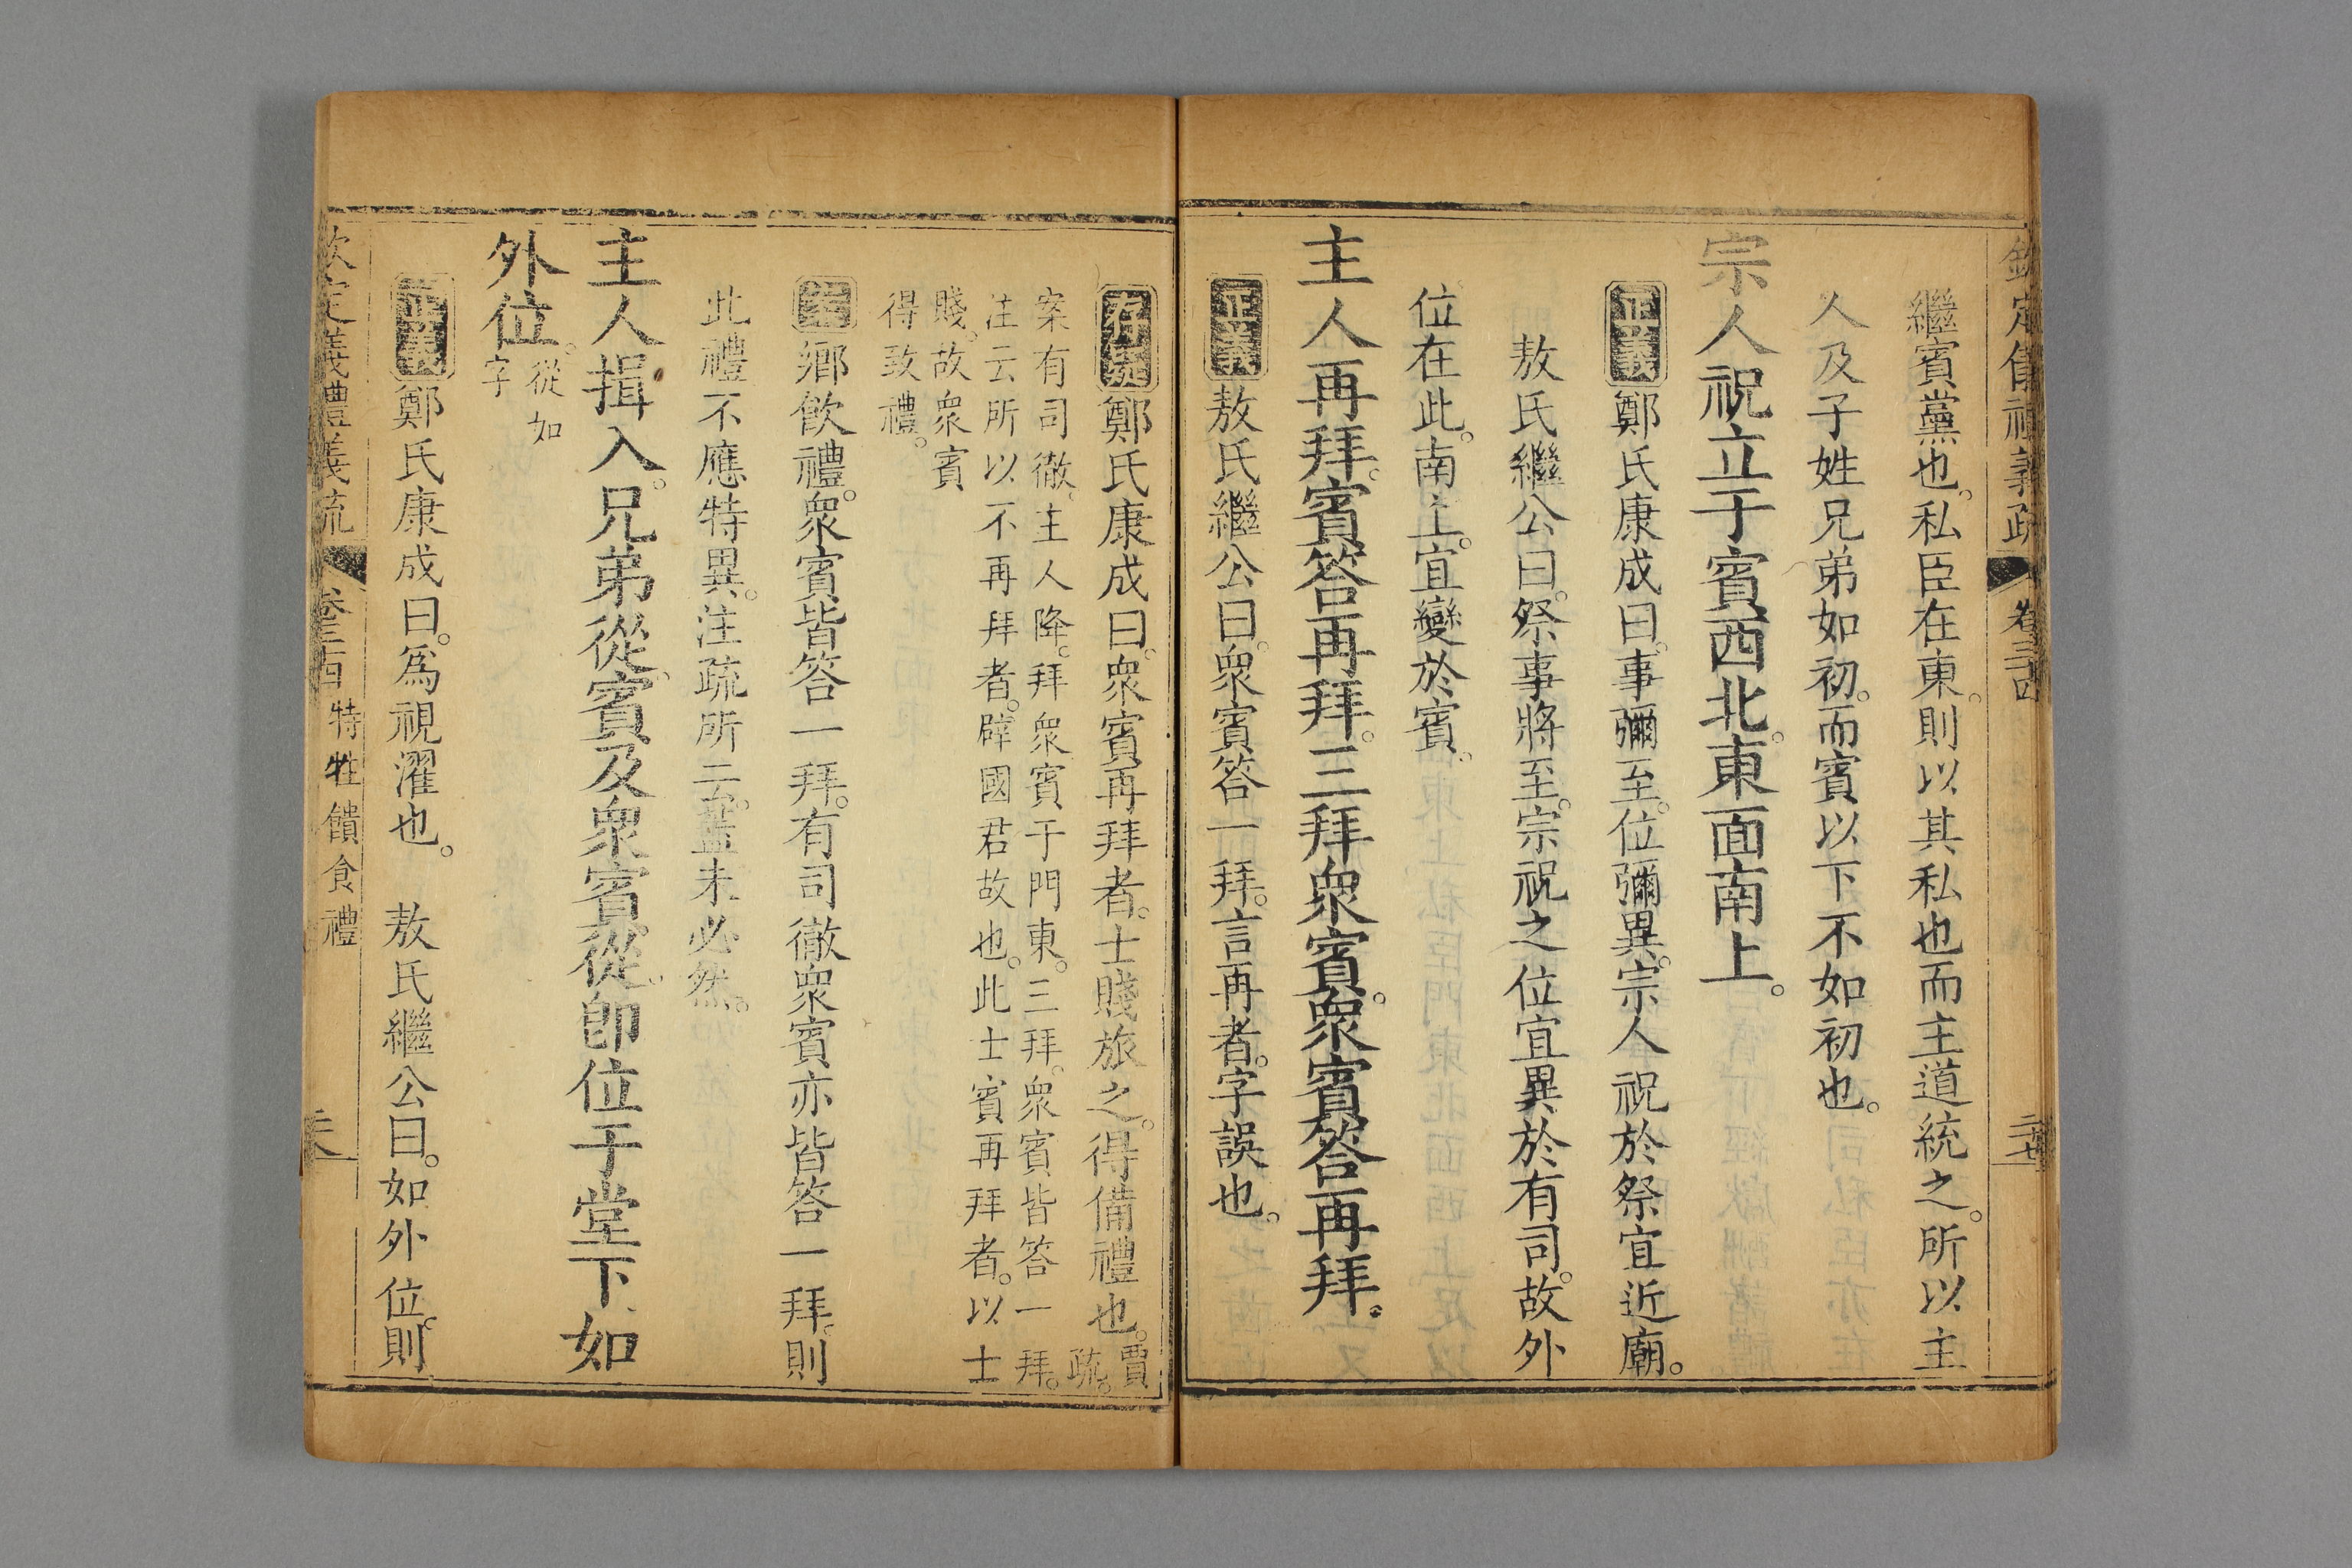 欽定儀禮義疏 卷三十四 二十七
繼賓黨也。私臣在東。則以其私也而主道統之。所以主
人及子姓兄弟如初。而賓以下不如初也。
宗人祝立于賓西北。東面南上。
正義鄭氏康成曰。事彌至。位彌異。宗人祝於祭宜近廟。
敖氏繼公曰。祭事將至。宗祝之位宜異於有司。故外
位在此。南上。宜變於賓。
主人再拜。賓荅再拜。三拜衆賓。衆賓荅再拜。
正義敖氏繼公曰。衆賓答一拜。言再者。字誤也。
存疑鄭氏康成曰。衆賓再拜者。士賤旅之。得備禮也。賈
疏。
案有司徹。主人降。拜衆賓于門東。三拜。衆賓皆答一拜。
注云所以不再拜者。辟國君故也。此士賓再拜者。以士
賤。故衆賓
得致禮。
鄉飲禮。衆賓皆答一拜。有司徹衆賓亦皆答一拜。則
此禮不應特異。注疏所云。蓋未必然。
主人揖入。兄弟從。賓及衆賓從。卽位于堂下。如
外位。從如
字
正義鄭氏康成曰。爲視濯也。 敖氏繼公曰。如外位。則
欽定儀禮義疏 卷三十四 特牲饋食禮